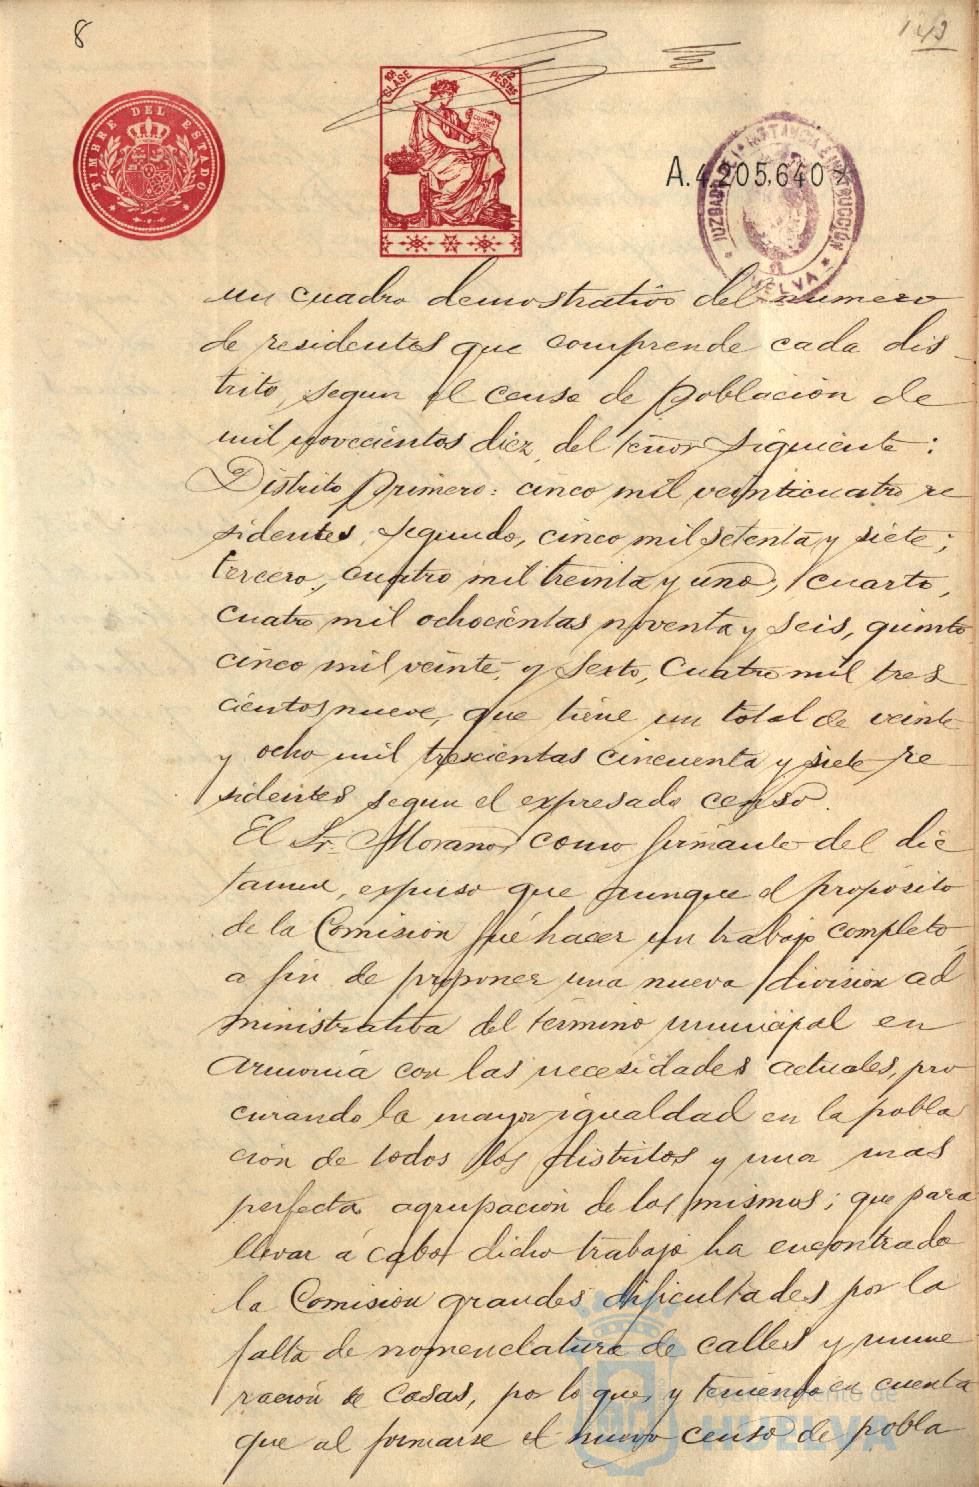 8
143
TIMBRE DEL ESTADO
10ª CLASE
2 PESTAS
A.4.205,640 *
JUZGADO DE 1ª INSTANCIA E INSTRUCCIÓN * HUELVA *
un cuadro demostrativo del numero
de residentes que comprende cada dis-
trito, segun el censo de población de
mil novecientos diez, del tenor siguiente:
Distrito Primero: cinco mil veinticuatro re
sidentes; segundo, cinco mil setenta y siete;
tercero, cuatro mil treinta y uno; cuarto,
cuatro mil ochocientas noventa y seis, quinto
cinco mil veinte, y sexto, cuatro mil tres
cientos nueve, que tiene un total de veinte
y ocho mil trescientas cincuenta y siete re-
sidentes segun el expresado censo.
El Sr. Morano, como firmante del dic
tamen, expuso que aunque el propósito
de la Comisión fué hacer un trabajo completo
a fin de proponer una nueva división ad
ministrativa del término municipal en
armonía con las necesidades actuales, pro
curando la mayor igualdad en la pobla
ción de todos los distritos y una mas
perfecta agrupación de los mismos; que para
llevar á cabo dicho trabajo ha encontrado
la Comisión grandes dificultades por la
falta de nomenclatura de calles y nume
ración de casas, por lo que, y teniendo en cuenta
que al formarse el nuevo censo de pobla
Ayuntamiento de
HUELVA